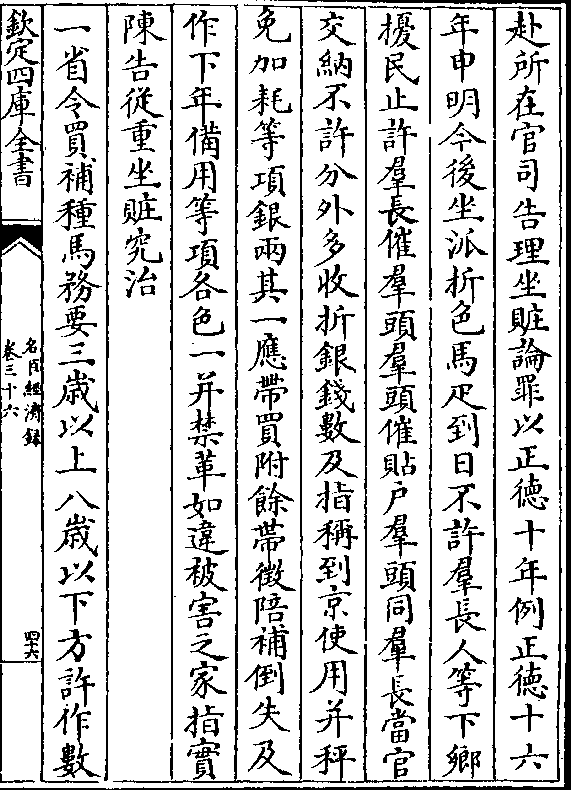 赴所在官司告理坐贓論罪以正德十年例正德十六
年申明今後坐派折色馬疋到日不許羣長人等下鄉
擾民止許羣長催羣頭羣頭催貼户羣頭同羣長當官
交納不許分外多收折銀錢數及指稱到京使用并秤
免加耗等項銀兩其一應帶買附餘帶徵陪補倒失及
作下年備用等項各色一并禁革如違被害之家指實
陳告從重坐贓究治
一省令買補種馬務要三歲以上八歲以下方許作數
欽定四庫全書
名臣經濟録
卷三十六
四十六